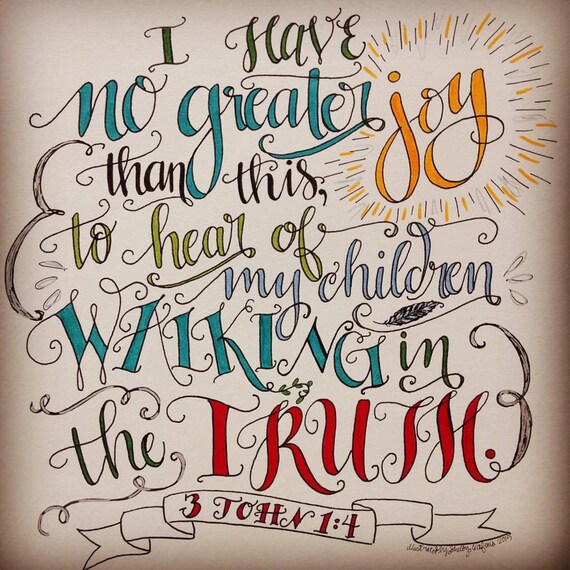 I HAVE
no greater joy
than this,
to hear of
my children
WALKING in
the TRUTH.
3 JOHN 1:4
illustrated by Shelby
2013